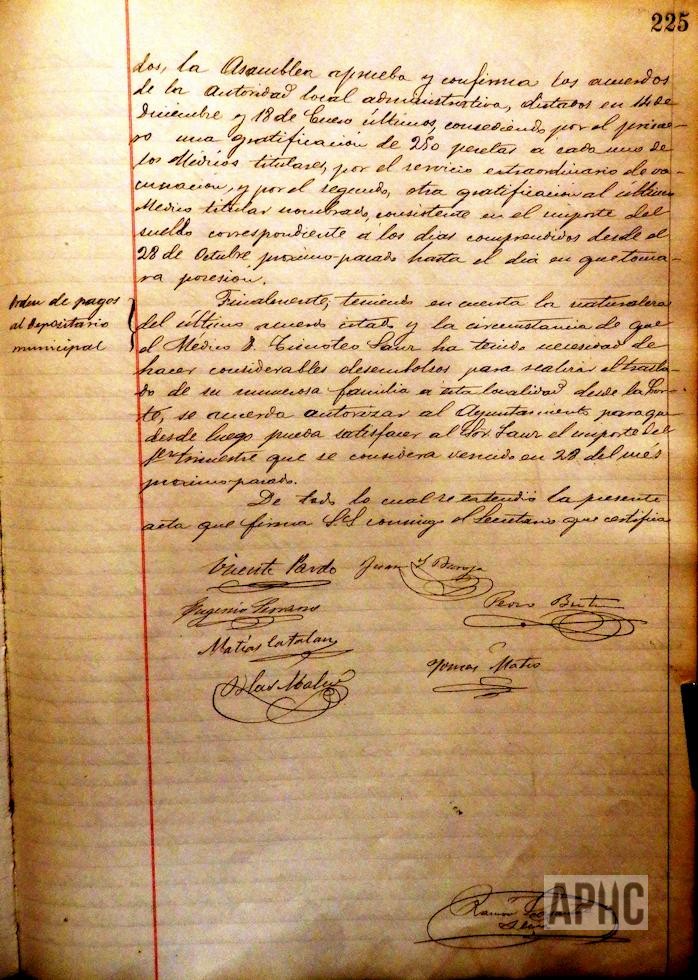 225
dos, la Asamblea aprueba y confirma los acuerdos
de la Autoridad local administrativa, dictados en 14 de
Diciembre y 18 de Enero últimos, concediendo por el prime-
ro una gratificación de 250 pesetas a cada uno de
los Médicos titulares, por el servicio extraordinario de va-
cunación, y por el segundo, otra gratificación al último
Médico titular nombrado, consistente en el importe del
sueldo correspondiente a los días comprendidos desde el
28 de Octubre próximo-pasado hasta el día en que toma-
ra posesión.
Orden de pagos
al Depositario
municipal
Finalmente, teniendo en cuenta la naturaleza
del último acuerdo citado y la circunstancia de que
el Médico D. Timoteo Sauz ha tenido necesidad de
hacer considerables desembolsos para realizar el trasla-
do de su numerosa familia a esta localidad desde la Cor-
te, se acuerda autorizar al Ayuntamiento para que
desde luego pueda satisfacer al Sor. Sauz el importe del
1er trimestre que se considera vencido en 28 del mes
próximo-pasado.
De todo lo cual se extendió la presente
acta que firma S.S. conmigo el Secretario que certifica
Vicente Pardo Juan
Eugenio Serrano
Pedro
Matías Catalan
Tomás Mateo
Blas
Ramón
APHC